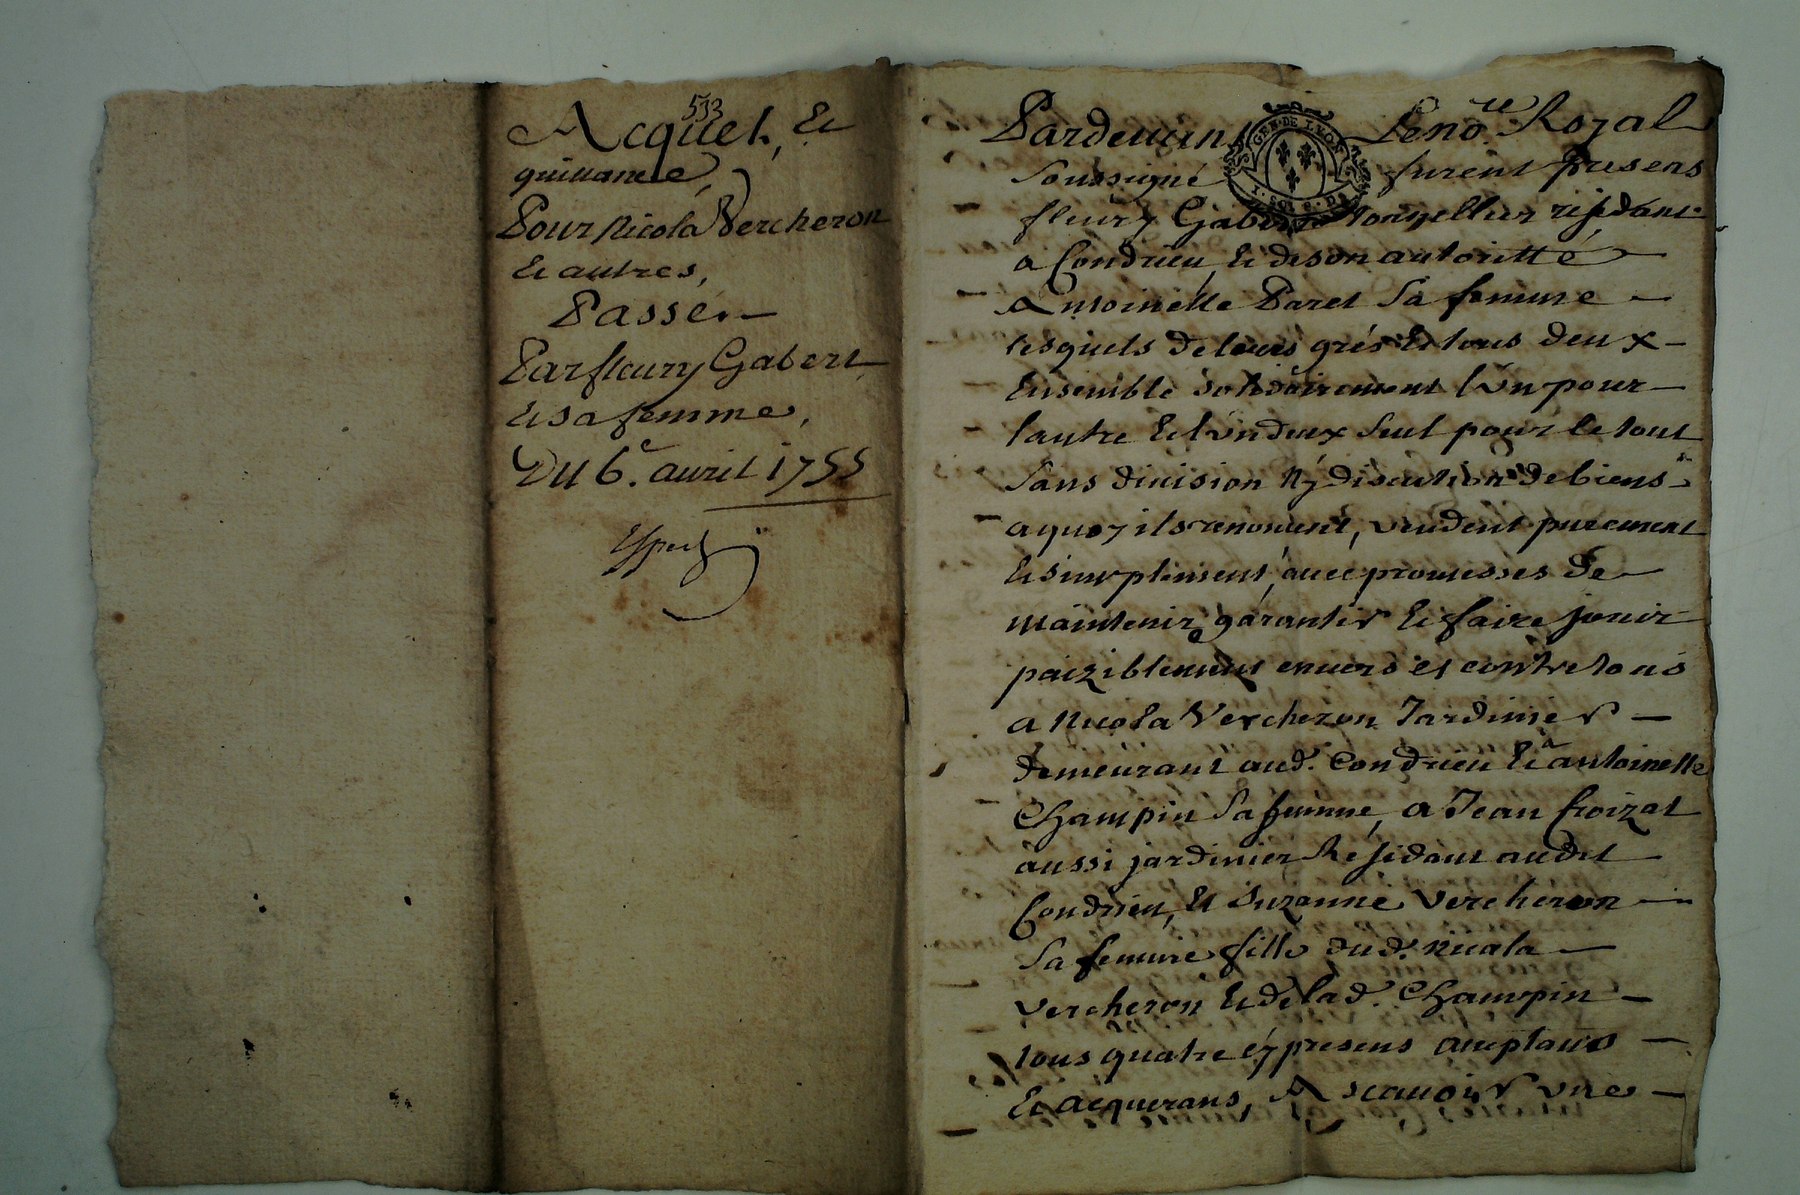 533
Acquet, Et
quittance,
Pour Nicola Vercheron
Et autres,
Passé.
Par fleury Gabert
Et sa femme,
Du 6.e avril 1755
Pardevant Le no.re Royal
Soussigné furent presens
fleury Gabert residant
a Condrieu, Et de son autoritté
Antoinette Paret Sa femme
lesquels de leurs grés Et tous deux
Ensemble solidairement l'un pour
lautre Et l'un deux Seul pour le tout
Sans division Ny discution de biens
a quoy ils renoncent, vendent purement
Et simplement, avec promesses de
maintenir garantir Et faire jouir
paiziblement envers et contre tous
a Nicola Vercheron Jardinier
demeurant aud. Condrieu Et a antoinette
Champin Sa femme, a Jean froizat
aussi jardinier Residant audit
Condrieu, Et Suzanne Vercheron
Sa femme fille dud. nicala
vercheron Et de lad. Champin
tous quatre cy presens acceptans
Et acquerans, A scavoir une
GEN. DE LYON